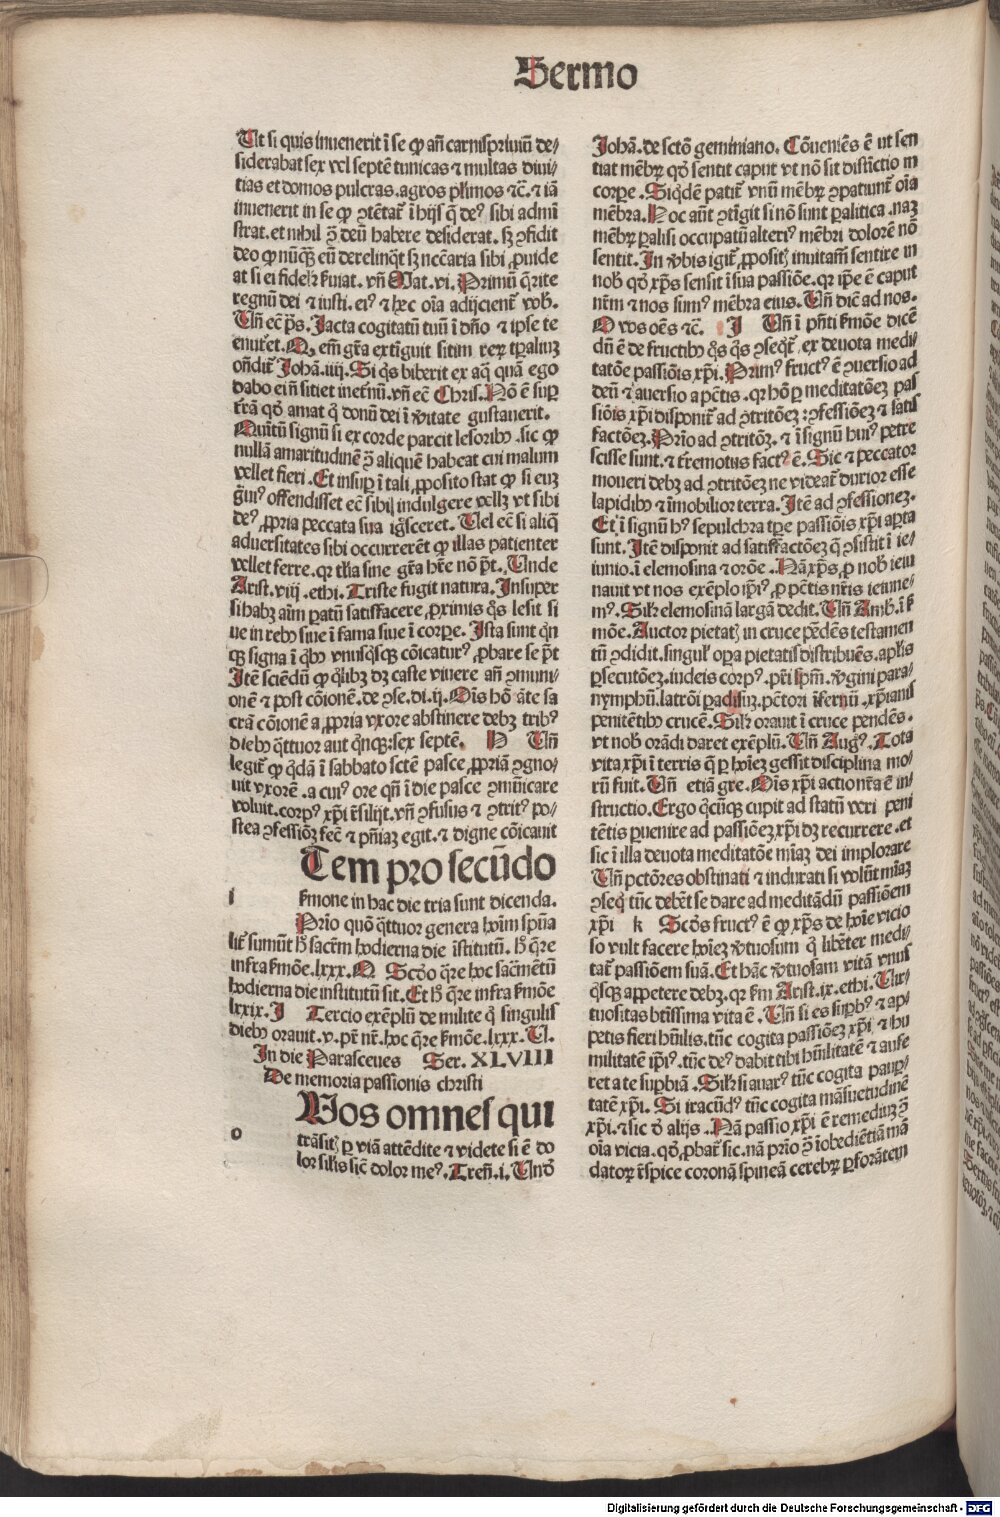 Sermo
Ut si quis invenerit ī se ꝙ añ carnispriviū de⸗
siderabat sex vel septē tunicas ⁊ multas divi⸗
tias et domos pulcras. agros pl̄imos ⁊c̄. ⁊ iā
invenerit in se ꝙ ꝯtētat᷑ ī hijs q̄ deꝰ sibi admi
strat. et nihil ꝯ̄ deū habere desiderat. sꝫ ꝯfidit
deo ꝙ nūcꝙ̄ eū derelinq̄t sꝫ nc̄caria sibi ꝓvide
at si ei fidelr̄ s̄viat. vñ Mat. vi. Primū q̄rite
regnū dei ⁊ iusti. eiꝰ ⁊ hec oīa adijcient᷑ vob̄.
Uñ ec̄ p̄s. Jacta cogitatū tuū ī dn̄o ⁊ ipse te
enutˀet. Q, em̄ gr̄a extīguit sitim reꝝ tp̄aliuꝫ
on̄dit᷑ Johā. iiij. Si q̄s biberit ex aq̄ quā ego
dabo ei nō sitiet inet̄nū. vñ ec̄ Chris. Nō ē suꝑ
tr̄ā qd̓ amat q̄ donū dei ī v̓itate gustaverit.
Quītū signū si ex corde parcit lesoribꝰ. sic ꝙ
nullā amaritudinē ꝯ̄ aliquē habeat cui malum
vellet fieri. Et insuꝑ ī tali ꝓposito stat ꝙ si euꝫ
g̓viꝰ offendisset ec̄ sibi indulgere vellꝫ ut sibi
deꝰ ꝓpria peccata sua igs̄ceret. Uel ec̄ si aliq̄
adversitates sibi occurrerēt ꝙ illas patienter
vellet ferre. qr t̄lia sine gr̄a hr̄e nō p̄t. Unde
Arist. viij. ethi. Triste fugit natura. Insuper
si habꝫ aīm ꝑatū satisfacere ꝓximis q̄s lesit si
ve in rebꝰ sive ī fama sive ī corꝑe. Ista sunt q̄n
cꝫ signa ī q̄bꝰ vnusq̄sꝗ cōicaturꝰ ꝓbare se p̄t
Itē sciēdū ꝙ q̄libꝫ dꝫ caste vivere añ ꝯmuni⸗
onē ⁊ post cōionē. de ꝯse. di. ij. Oīs hō āte sa
crā cōionē a ꝓpria vxore abstinere debꝫ tribꝰ
diebꝰ q̄ttuor aut q̄nꝗ: sex septē. H Uñ
legit᷑ ꝙ q̄dā ī sabbato sctē pasce ꝓpriā ꝯgno⸗
vit vxorē. a cuiꝰ ore qn̄ ī die pasce ꝯmūicare
voluit. corpꝰ xp̄i t̄silijt. vñ ꝯfusus ⁊ ꝯtritꝰ po⸗
stea ꝯfessiōꝫ fec̄ ⁊ pn̄iaꝫ egit. ⁊ digne cōicavit
Tem pro secūdo
i s̄mone in hac die tria sunt dicenda.
Prio quō q̄ttuor genera hoīm sp̄ua
lit᷑ sumūt h̓ sacr̄m hodierna die īstitutū. h̓ q̄re
infra s̄mōe. lxxx. Q Scd̓o q̄re hoc sac̄mētū
hodierna die institutū sit. Et h̓ q̄re infra s̄mōe
lxxix. J Tercio exēplū de milite q̄ singulis
diebꝰ oravit. v. pr̄ nr̄. hoc q̄re s̄mōe. lxxx. U.
In die Parasceves Ser. XLVIII
De memoria passionis christi
Vos omnes qui
o trāsitꝭ ꝑ viā attēdite ⁊ videte si ē do
lor silis sic̄ dolor meꝰ. Tren̄. i. Un̄d̓
Johā. de sctō geminiano. Cōveniēs ē ut sen
tiat mēbꝝ qd̓ sentit caput vt nō sit distīctio in
corꝑe. Siq̄dē patit᷑ vnū mēbꝝ ꝯpatiunt᷑ oīa
mēbra. Hoc aūt ꝯtīgit si nō sunt ꝑalitica. naꝫ
mēbꝝ ꝑalisi occupatū alteriꝰ mēbri dolorē nō
sentit. In v̓bis igit᷑ ꝓpositꝭ invitam̄ sentire in
nob̄ qd̓ xp̄s sensit ī sua passiōe. qr ip̄e ē caput
nr̄m ⁊ nos sumꝰ mēbra eius. Uñ dic̄ ad nos.
O vos oēs ⁊c̄. J Uñ ī pn̄ti s̄mōe dicē
dū ē de fructibꝰ q̄s q̄s ꝯseq̄t᷑ ex devota medi⸗
tatōe passiōis xp̄i. Primꝰ fructꝰ ē ꝯversio ad
deū ⁊ aversio a pctīs. qr hō ꝑ meditatōeꝫ pas
siōis xp̄i disponit᷑ ad ꝯtritōeꝫ: ꝯfessiōeꝫ ⁊ satis
factōeꝫ. Prio ad ꝯtritōꝫ. ⁊ ī signū huiꝰ petre
scisse sunt. ⁊ tr̄emotus factꝰ ē. Sic ⁊ peccator
moveri debꝫ ad ꝯtritōeꝫ ne videat᷑ durior esse
lapidibꝰ ⁊ īmobilior terra. Itē ad ꝯfessioneꝫ.
Et ī signū hꝰ sepulchra tꝑe passiōis xp̄i aꝑta
sunt. Itē disponit ad satisfactōeꝫ q̄ ꝯsistit ī ie⸗
iunio. ī elemosina ⁊ orōe. Nā xp̄s ꝓ nob̄ ieiu
navit vt nos exēplo ip̄iꝰ ꝓ pctīs nr̄is ieiune⸗
mꝰ. Silr̄ elemosinā largā dedit. Uñ Amb̄. ī s̄
mōe. Auctor pietatꝭ in cruce pēdēs testamen
tū ꝯdidit. singul̓ oꝑa pietatis distribuēs. apl̄is
ꝑsecutōeꝫ. iudeis corpꝰ. pr̄i sp̄m. v̓gini para⸗
nymphū. latrōi ꝑadisuꝫ. pctōri īfernū. xp̄ianis
penitētibꝰ crucē. Silr̄ oravit ī cruce pendēs.
vt nob̄ orādi daret exēplū. Uñ Augꝰ. Tota
vita xp̄i ī terris q̄ ꝑ hoīeꝫ gessit disciplina mo⸗
rū fuit. Uñ etiā gre. Oīs xp̄i actio nr̄a ē in⸗
structio. Ergo q̄cūꝗ cupit ad statū veri peni
tētis ꝑvenire ad passiōeꝫ xp̄i dꝫ recurrere. et
sic ī illa devota meditatōe mīaꝫ dei implorare
Uñ pctōres obstinati ⁊ indurati si volūt mīaꝫ
ꝯseq̄ tūc debēt se dare ad meditādū passiōem
xp̄i k Scd̓s fructꝰ ē ꝙ xp̄s de hoīe vicio
so vult facere hoīeꝫ v̓tuosum q̄ libēter medi⸗
tat᷑ passiōem suā. Et hāc v̓tuosam vitā vnus
q̄sꝗ appetere debꝫ. qr s̄m Arist. ix. ethi. Uir⸗
tuositas btīssima vita ē. Uñ si es suꝑbꝰ ⁊ ap⸗
petis fieri hūilis. tūc cogita passiōeꝫ xp̄i ⁊ hu
militatē ip̄iꝰ. tūc deꝰ dabit tibi hūilitatē ⁊ aufe
ret a te suꝑbiā. Silr̄ si avarꝰ tūc cogita pauꝑ⸗
tatē xp̄i. Si iracūdꝰ tūc cogita māsuetudinē
xp̄i. ⁊ sic d̓ alijs. Nā passio xp̄i ē remediuꝫ ꝯ̄
oīa vicia. qd̓ ꝓbat᷑ sic. nā prio ꝯ̄ īobediētiā mā
datoꝝ īspice coronā spineā cerebꝝ ꝑforātem
Digitalisierung gefördert durch die Deutsche Forschungsgemeinschaft - DFG